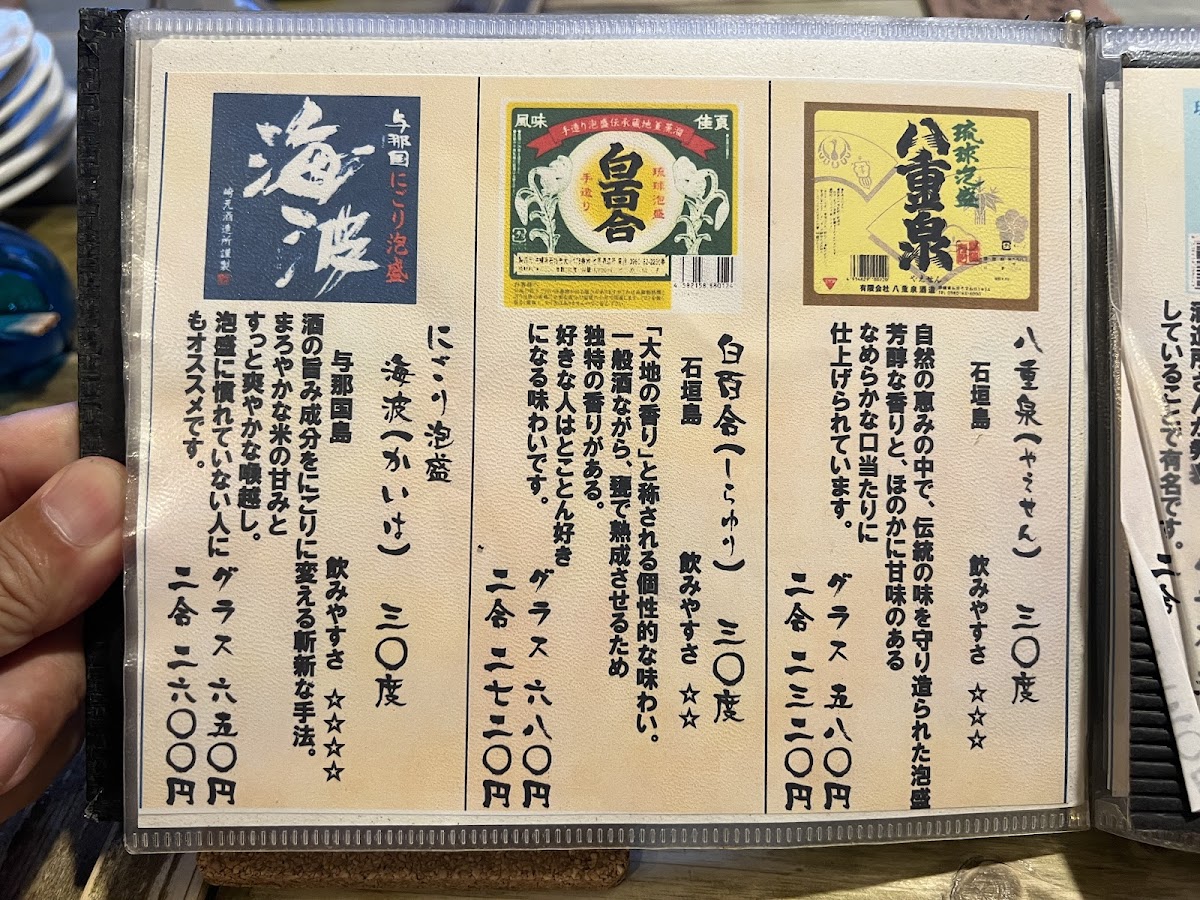 琉球泡盛
八重泉
有限会社 八重泉酒造
八重泉(やえせん) 三〇度
石垣島 飲みやすさ ☆☆☆
自然の恵みの中で、伝統の味を守り造られた泡盛
芳醇な香りと、ほのかに甘味のある
なめらかな口当たりに
仕上げられています。
グラス 五八〇円
二合 二三二〇円
風味
佳真
手造り泡盛伝承蔵地釜蒸溜
琉球泡盛
白百合
手造り
4 582158 680124
白百合(しらゆり) 三〇度
石垣島 飲みやすさ ☆☆
「大地の香り」と称される個性的な味わい。
一般酒ながら、甕で熟成させるため
独特の香りがある。
好きな人はとことん好き
になる味わいです。
グラス 六八〇円
二合 二七二〇円
与那国
にごり泡盛
海波
崎元酒造所謹製
にごり泡盛
海波(かいは) 三〇度
与那国島 飲みやすさ ☆☆☆☆
酒の旨み成分をにごりに変える斬新な手法。
まろやかな米の甘みと
すっと爽やかな喉越し。
泡盛に慣れていない人に
もオススメです。
グラス 六五〇円
二合 二六〇〇円
していることで有名です。
二合